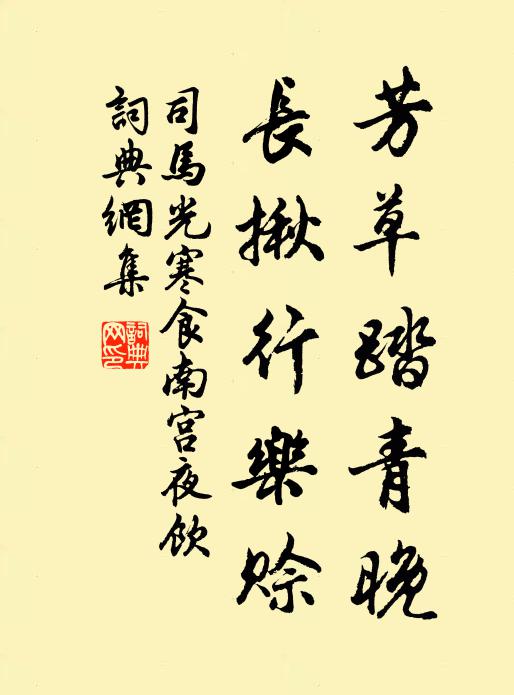 芳草踏青晚
長揪行樂賒
司馬光寒食南宮夜飲
詞典網集
詞典網印